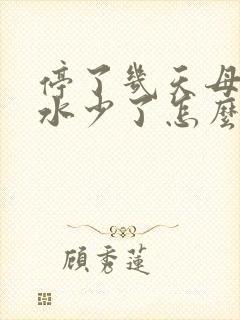 停了幾天母
水少了怎麼
顧秀蓮